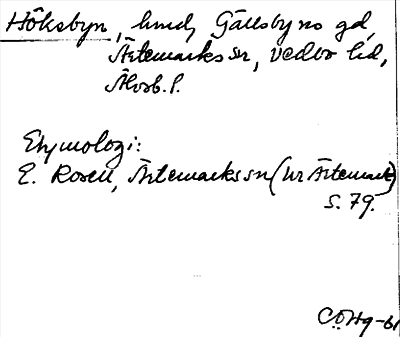 Höksbyn, hmd, Gällsbyns gd,
Ärtemarks sn, Vedbo hd,
Älvsb. l.
Etymologi:
E. Rosell, Ärtemarks sn (ur Ärtemark)
S. 79.
CÖHg-61